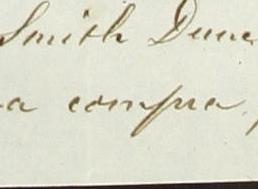 Smith Dunc
a compra